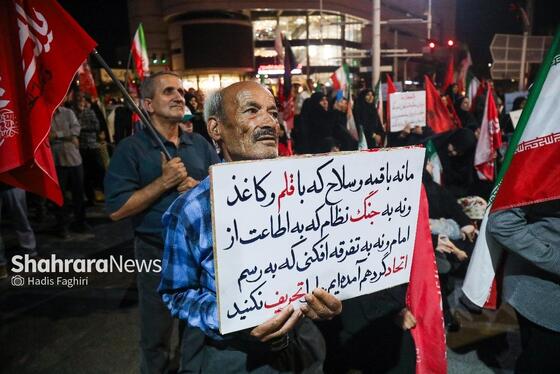 ما نه با قبضه وسلاح که با قلم وکاغذ
ونه به جنگ نظام که به اطاعت از
امام ونه به تفرقه افکنی که به رسم
اتحاد گردهم آمده‌ایم ما را تحریف نکنید
ShahraraNEWS
Hadis Faghiri